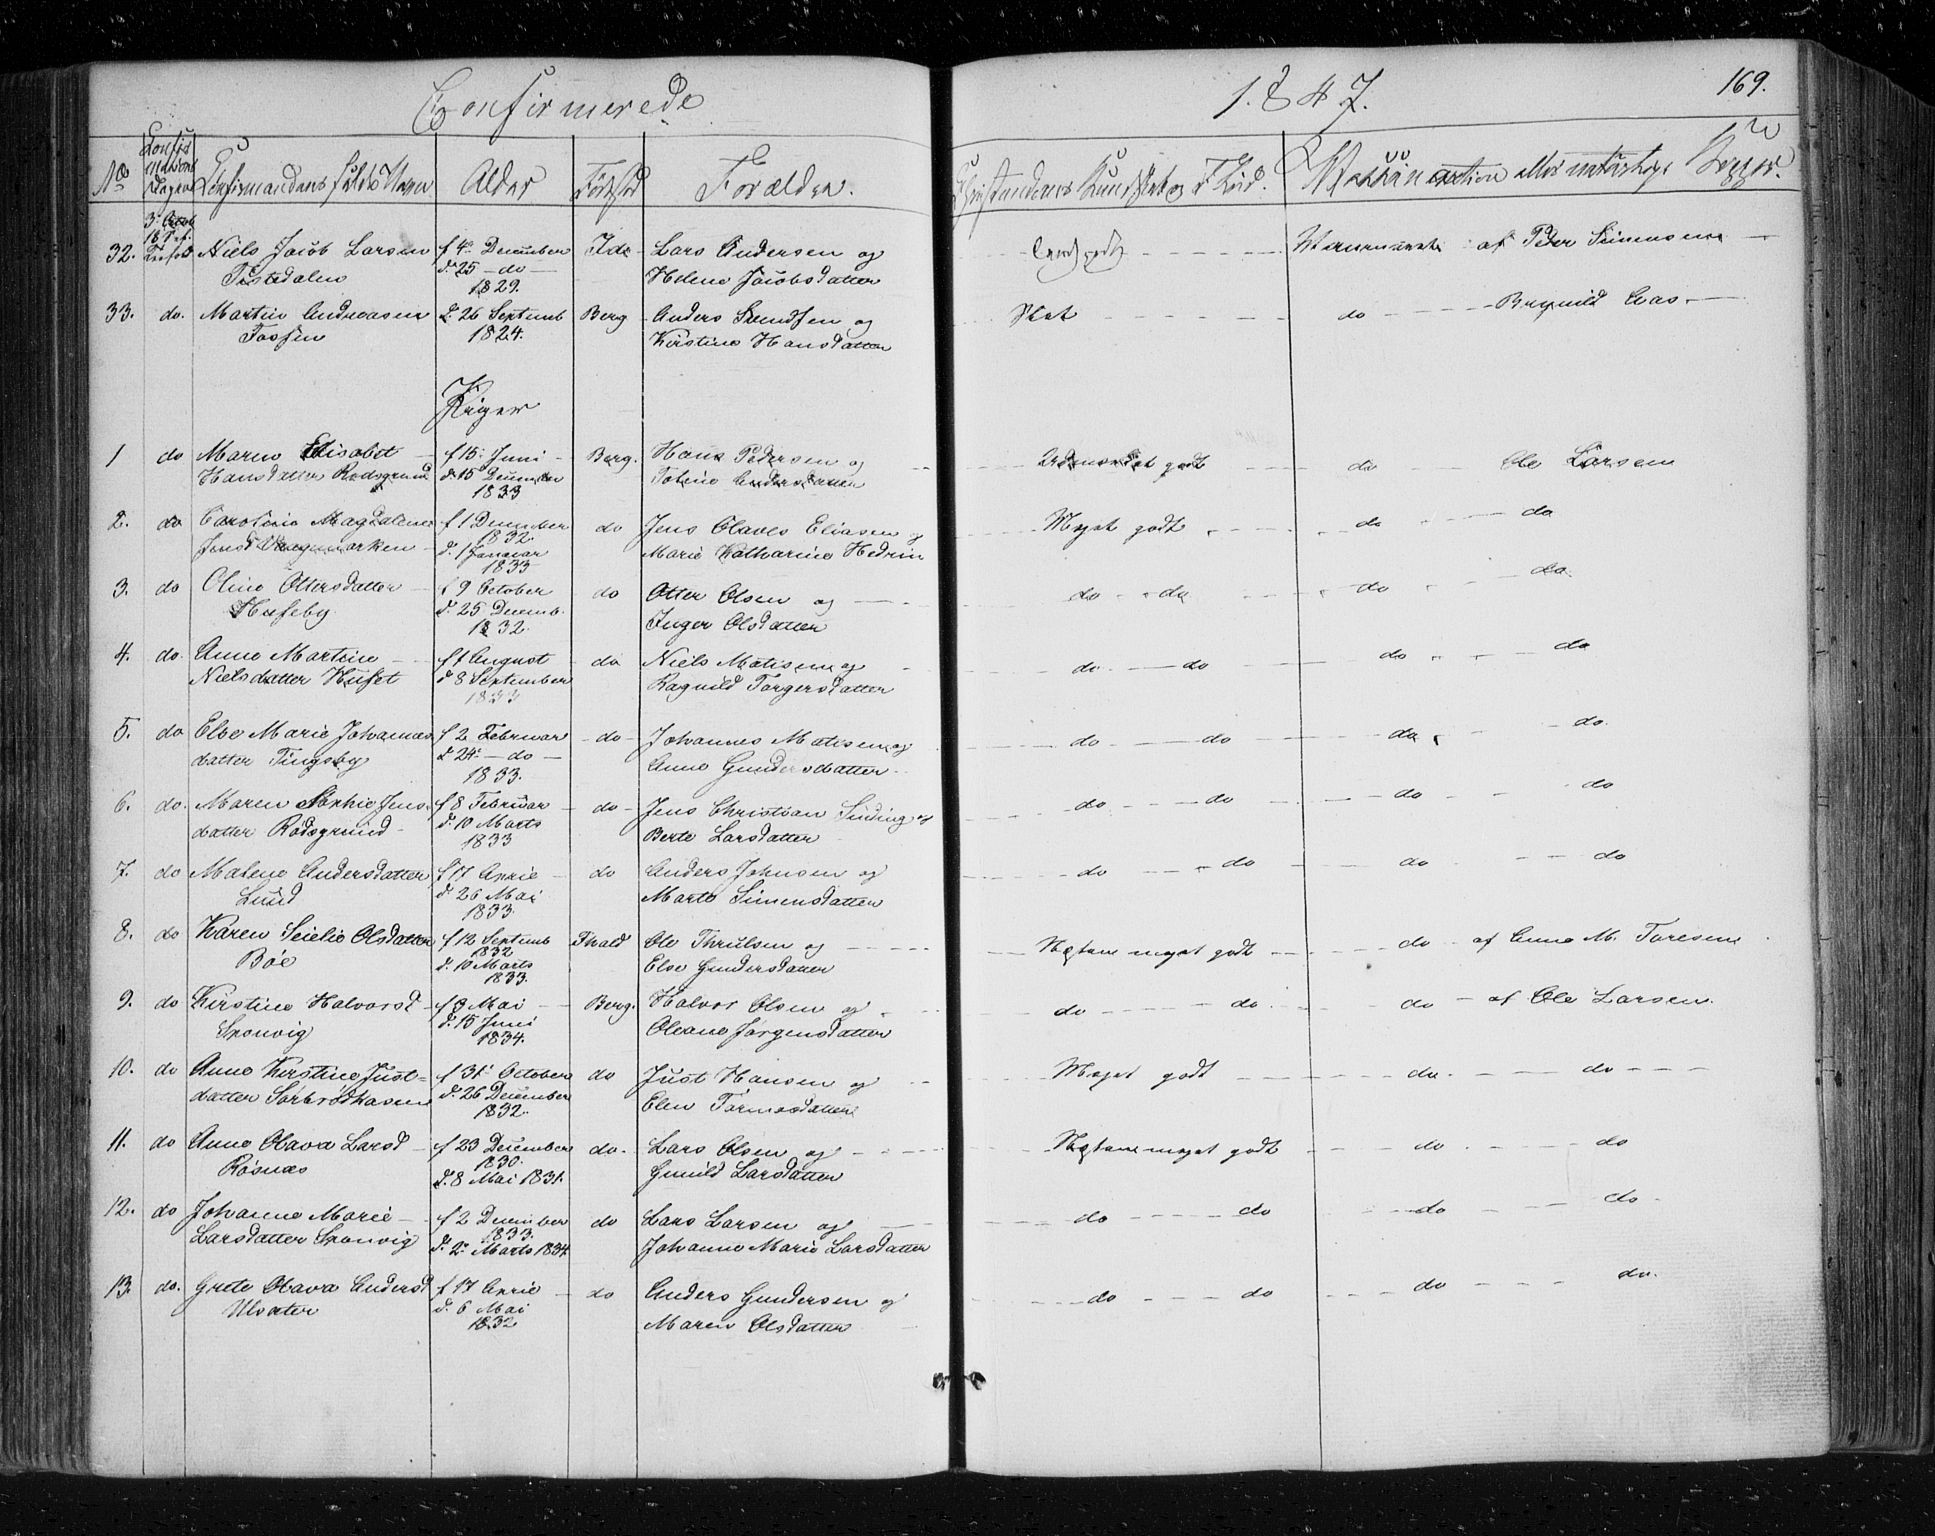 Confirmerede
1847.
169.
No Confirmations Dagen Confirmandens fulde Navn Alder Födested Forældre. Christendoms Kundskab og Flid. Vaccination eller naturlige Kopper.
32. Niels Jacob Larsen f 4de December Idd Lars Andersen og godt Vaccineret af Peder Simensen
Tistedalen d. 25 - do - Helene Jacobsdatter
1829.
33. do. Martin Andreasen d. 26 Septemb Berg Anders Svendsen og Slet do
Fossen 1824. Kirstine Hansdatter
Piger
1 do Maren Elisabet f 15 Juni Berg. Hans Pedersen og godt do Ole Larsen
Hansdatter Rødsgrund d. 15 December Andersdatter
1833
2. do Caroline Magdalene f 1 December do Jens Olaves Eliasen og Meget godt do do
1832.
Jensd d. 1 Januar Marie Katharine Hedvin
1833
3. do Oline Ottersdatter f 9 October do Otter Olsen og do do do do
Huseby d. 25 Decemb. Inger Olsdatter
1832.
4. do. Anne Martine f 1 August do Niels Matisen og do do do do
Nielsdatter Huset d 8 September Ragnild Torgersdatter
1833
5. do Else Marie Johannes f 2 Februar do Johannes Matisen og do do do do.
datter Tingsby d. 24 - do - Anne Gundersdatter
1833.
6. do. Maren Sophie Jens f 8 Februar do Jens Christian Sinding og do do do do
datter Rødsgrund d. 10 Marts Berte Larsdatter
1833
7. do Malene Andersdatter f 17 April do Anders Johnsen og do do do do
Lund d. 26 Mai Marte Simensdatter
1833.
8. do Karen Olsdatter f 12 Septemb Fhald Ole Thrulsen og meget godt do af Anne M. Toresen
1832
Böe d. 10 Marts Else Gundersdatter
1833.
9. do Kirstine Halvorsd f 9 Mai Berg. Halvor Olsen og do do do af Ole Larsen
Sponvig d. 15 Juni Oleane Jørgensdatter
1834.
10. do Anne Kirstine Just- f 31 October do Just Hansen og Meget godt do do
datter Sørbrødhasen d. 26 December Elen Tormosdatter
1832.
11. do Anne Olava Larsd f 23 December do. Lars Olsen og meget godt do do
1830.
Røsnæs d. 8 Mai 1831. Gunild Larsdatter
12. do Johanne Marie f 2 December do Lars Larsen og do do do do
1833.
Larsdatter Sponvig d. 2 Marts 1834 Johanne Marie Larsdatter
13. do. Grete Olava Andersd f 17 April do Anders Gundersen og do do do do.
Ulvæter d. 6 Mai Maren Olsdatter
1832